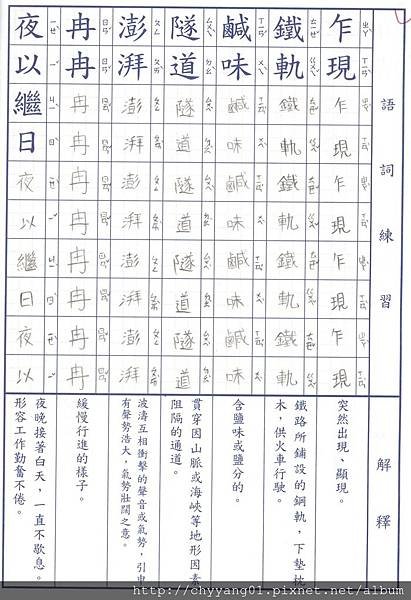 語詞練習
乍現乍現乍現乍現乍現
鐵軌鐵軌鐵軌鐵軌鐵軌
鹹味鹹味鹹味鹹味鹹味
隧道隧道隧道隧道隧道
澎湃澎湃澎湃澎湃澎湃
冉冉冉冉冉冉冉冉冉冉
夜以繼日夜以繼日夜以
解釋
突然出現、顯現。
鐵路所鋪設的鋼軌，下墊枕
木，供火車行駛。
含鹽味或鹽分的。
貫穿因山脈或海峽等地形因素
阻隔的通道。
波濤互相衝擊的聲音或氣勢，引申
有聲勢浩大，氣勢壯闊之意。
緩慢行進的樣子。
夜晚接著白天，一直不歇息。
形容工作勤奮不倦。
http://chyyang01.pixnet.net/album